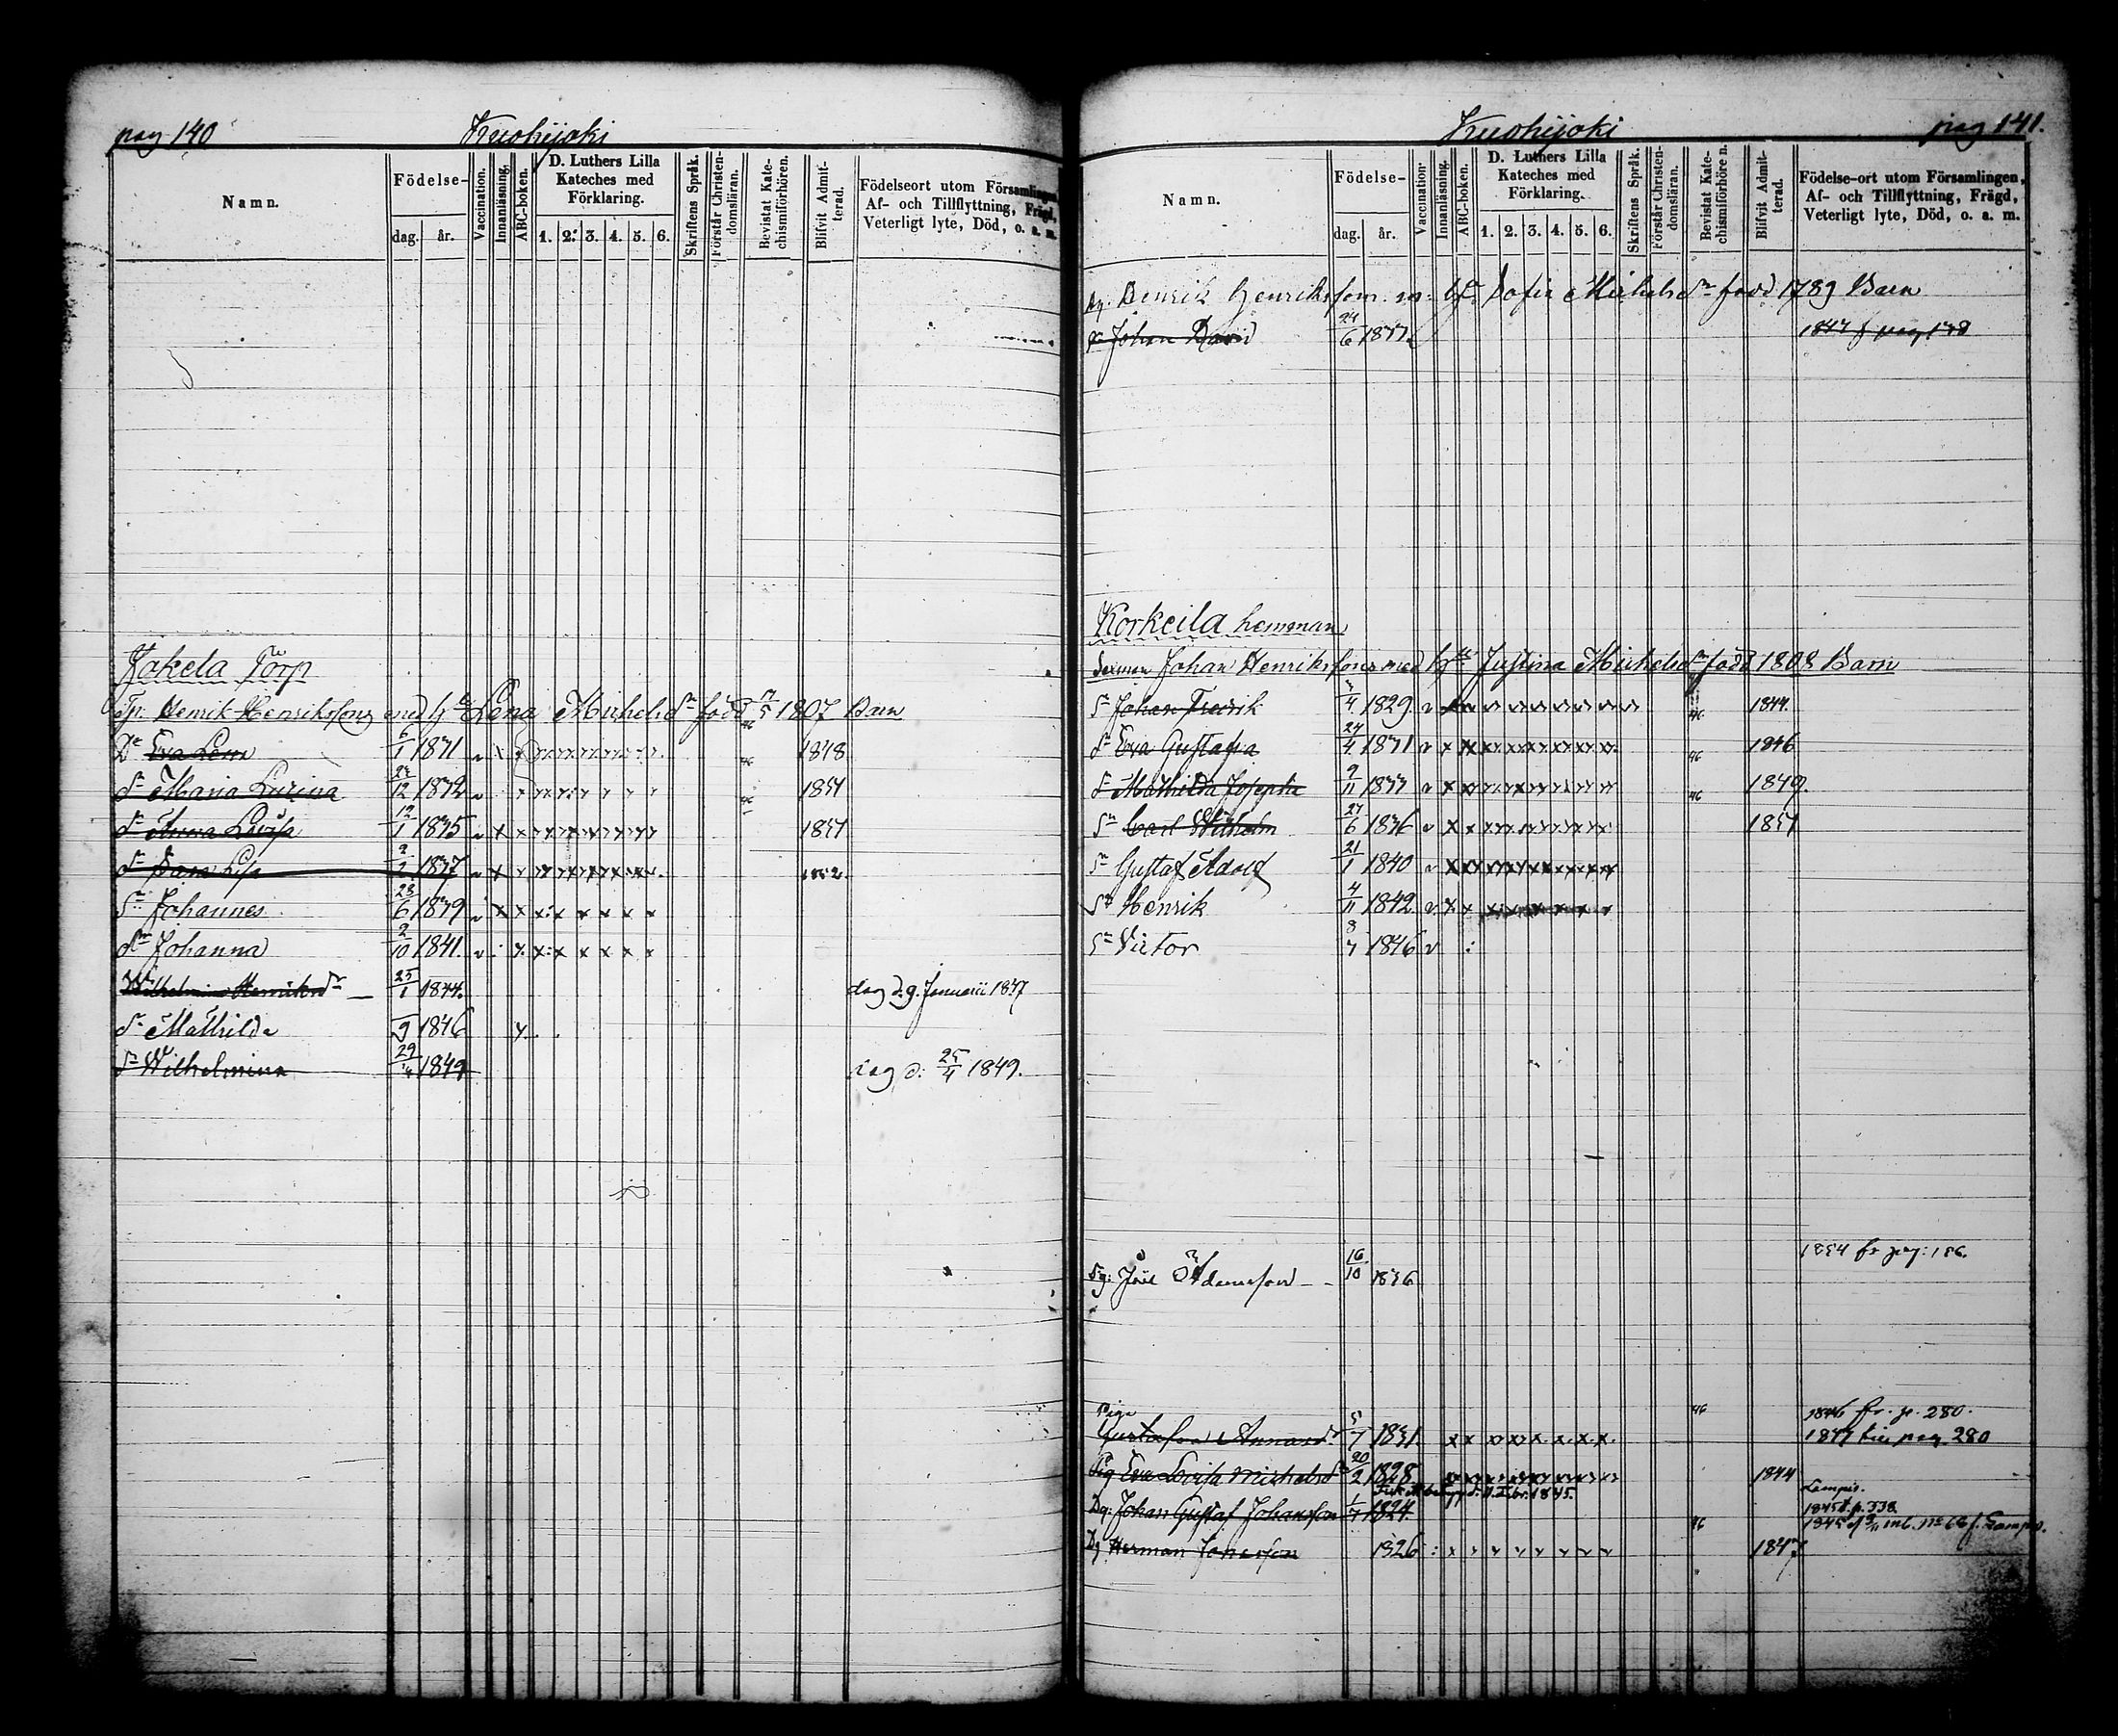 pag 140 Kuohijoki
Namn. Födelse- dag. år. Vaccination. Innanläsning. ABC-boken. D. Luthers Lilla Kateches med Förklaring. 1. 2. 3. 4. 5. 6. Skriftens Språk. Förstår Christendomsläran. Bevistat Katechismiförhören. Blifvit Admitterad. Födelseort utom Församlingen, Af- och Tillflyttning, Frägd, Veterligt lyte, Död, o. a. m.
Jakela Torp
Henrik Henriksson med h Lena Michelsdr född 1807 Barn
Dr Eva Lena 6/1 1831 1848
Dr Maria Lovisa 12 1832 1851
Dr Anna Lovisa 12/1 1835 1851
Dr Lisa 2/2 1837 1852
Sn Johannes 23/6 1839
Dr Johanna 2/10 1841.
Wilhelmina Henriksdr 25/1 1844. dog d. 9. Januarii 1847
Dr Mathilda 9 1846
Dr Wilhelmina 29 1849 dog d: 25/4 1849.
Kuohijoki pag 141.
Namn. Födelse- dag. år. Vaccination Innanläsning. ABC-boken. D. Luthers Lilla Kateches med Förklaring. 1. 2. 3. 4. 5. 6. Skriftens Språk. Förstår Christendomsläran. Bevistat Katechismiförhören. Blifvit Admitterad. Födelse-ort utom Församlingen, Af- och Tillflyttning, Frägd, Veterligt lyte, Död, o. a. m.
Henrik Henriksson m: h Sofia Michelsdr född 1789 Barn
Johan David 24/6 1833
Korkeila hemman
Johan Henriksson med h Justina Michelsdr född 1808 Barn
Sn Johan Fredrik 4 1829 46 1844.
Dr Eva Gustafva 24/4 1831 46 1846
Dr Mathilda Josepha 9/11 1833 46 1849.
Sn Carl Wilhelm 27/6 1836 1851
Sn Gustaf Adolf 21/1 1840
Sn Henrik 4/11 1842
Sn Victor 8 1846
Adamsson 16/10 1836 1854 fr pag: 186.
Piga 46 1846 fr. p. 280.
Gustafva Annasdr 5/7 1831. 1847 till pag 280
Pig Eva Lovisa Michelsdr 20/2 1828 1844
Dg: Johan Gustaf Johansson 1/7 1824 Lampis. 1845 f. p. 338
46
Dg Herman Jonasson 1826 1847